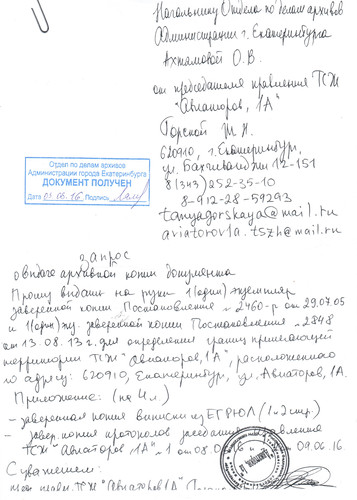 Начальнику Отдела по делам архивов
Администрации г. Екатеринбурга
Ахтямовой О.В.
от председателя правления ТСЖ
"Авиаторов, 1А"
Горской Т.Н.
620910, г. Екатеринбург,
ул. Бахчиванджи 12-151
8(343)252-35-10
8-912-28-59293
tanyagorskaya@mail.ru
aviatorov1a.tszh@mail.ru
Отдел по делам архивов
Администрации города Екатеринбурга
ДОКУМЕНТ ПОЛУЧЕН
Дата 01.06.16 Подпись
запрос
о выдаче архивной копии документа
Прошу выдать на руки 1(один) экземпляр
заверенной копии Постановления № 2460-р от 29.07.05
и 1(один) экз. заверенной копии Постановления № 2848
от 13.08.13 г. для определения границ прилегающей
территории ТСЖ "Авиаторов, 1А", расположенного
по адресу: 620910, Екатеринбург, ул. Авиаторов, 1А.
Приложение: (на 4 л.)
- заверенная копия выписки из ЕГРЮЛ (1 и 2 стр.)
- завер. копия протоколов заседания правления
ТСЖ "Авиаторов, 1А" №1 от 08.0 09.06.16
С уважением:
ТСЖ "Авиаторов 1А"